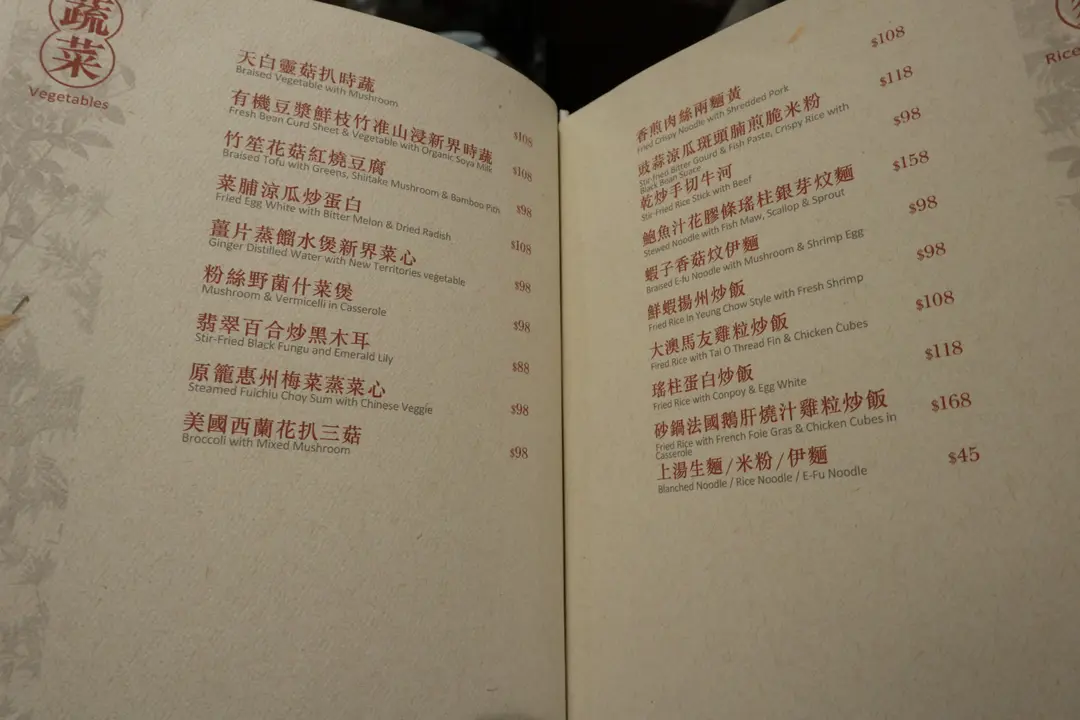 蔬菜
Vegetables
天白靈菇扒時蔬
Braised Vegetable with Mushroom
$108
有機豆漿鮮枝竹准山浸新界時蔬
Fresh Bean Curd Sheet & Vegetable with Organic Soya Milk
$108
竹笙花菇紅燒豆腐
Braised Tofu with Greens, Shiitake Mushroom & Bamboo Pith
$98
菜脯涼瓜炒蛋白
Fried Egg White with Bitter Melon & Dried Radish
$108
薑片蒸餾水煲新界菜心
Ginger Distilled Water with New Territories vegetable
$98
粉絲野菌什菜煲
Mushroom & Vermicelli in Casserole
$98
翡翠百合炒黑木耳
Stir-Fried Black Fungu and Emerald Lily
$88
原籠惠州梅菜蒸菜心
Steamed Fuichlu Choy Sum with Chinese Veggie
$98
美國西蘭花扒三菇
Broccoli with Mixed Mushroom
$98
Rice
香煎肉絲兩麵黃
Fried Crispy Noodle with Shredded Pork
$108
豉蒜涼瓜斑頭腩煎脆米粉
Stir-fried Bitter Gourd & Fish Paste, Crispy Rice with
Black Bean Suace
$118
乾炒手切牛河
Stir-Fried Rice Stick with Beef
$98
鮑魚汁花膠條瑤柱銀芽炆麵
Stewed Noodle with Fish Maw, Scallop & Sprout
$158
蝦子香菇炆伊麵
Braised E-fu Noodle with Mushroom & Shrimp Egg
$98
鮮蝦揚州炒飯
Fried Rice In Yeung Chow Style with Fresh Shrimp
$98
大澳馬友雞粒炒飯
Fired Rice with Tai O Thread Fin & Chicken Cubes
$108
瑤柱蛋白炒飯
Fried Rice with Conpoy & Egg White
$118
砂鍋法國鵝肝燒汁雞粒炒飯
Fried Rice with French Foie Gras & Chicken Cubes in
Casserole
$168
上湯生麵/米粉/伊麵
Blanched Noodle / Rice Noodle / E-Fu Noodle
$45